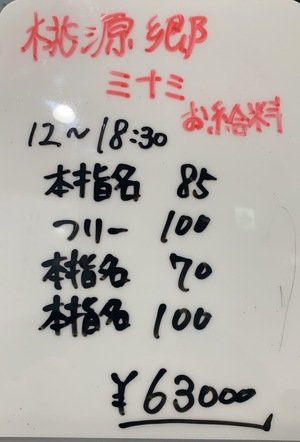 桃源郷
三十三
お給料
12～18:30
本指名 85
フリー 100
本指名 70
本指名 100
¥63000